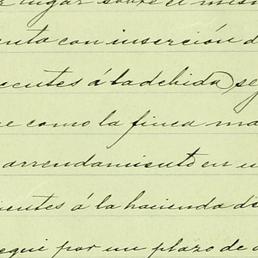 lugar sobre el mism
enta con inserción d
centes á la debida seg
e como la finca ma
arrendamiento en u
ientes á la hacienda d
egui por un plazo de